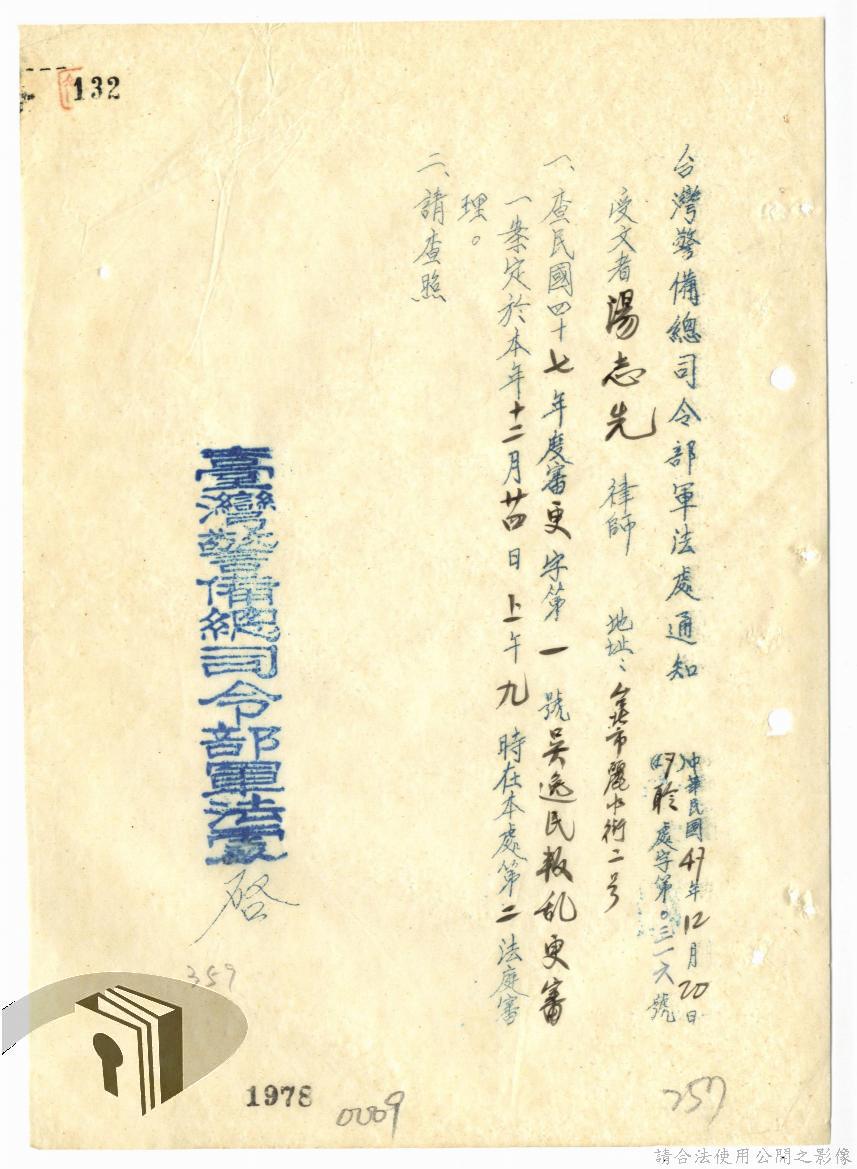 132
台灣警備總司令部軍法處通知
中華民國47年12月20日
(47)聆處字第〇三一六號
受文者湯志先律師 地址：台北市麗水街二号
一、查民國四十七年度審更字第一號吳逸民叛乱更審
一案定於本年十二月廿四日上午九時在本處第二法庭審
理。
二、請查照
臺灣警備總司令部軍法處
啓
359
1978
0009
257
請合法使用公開之影像